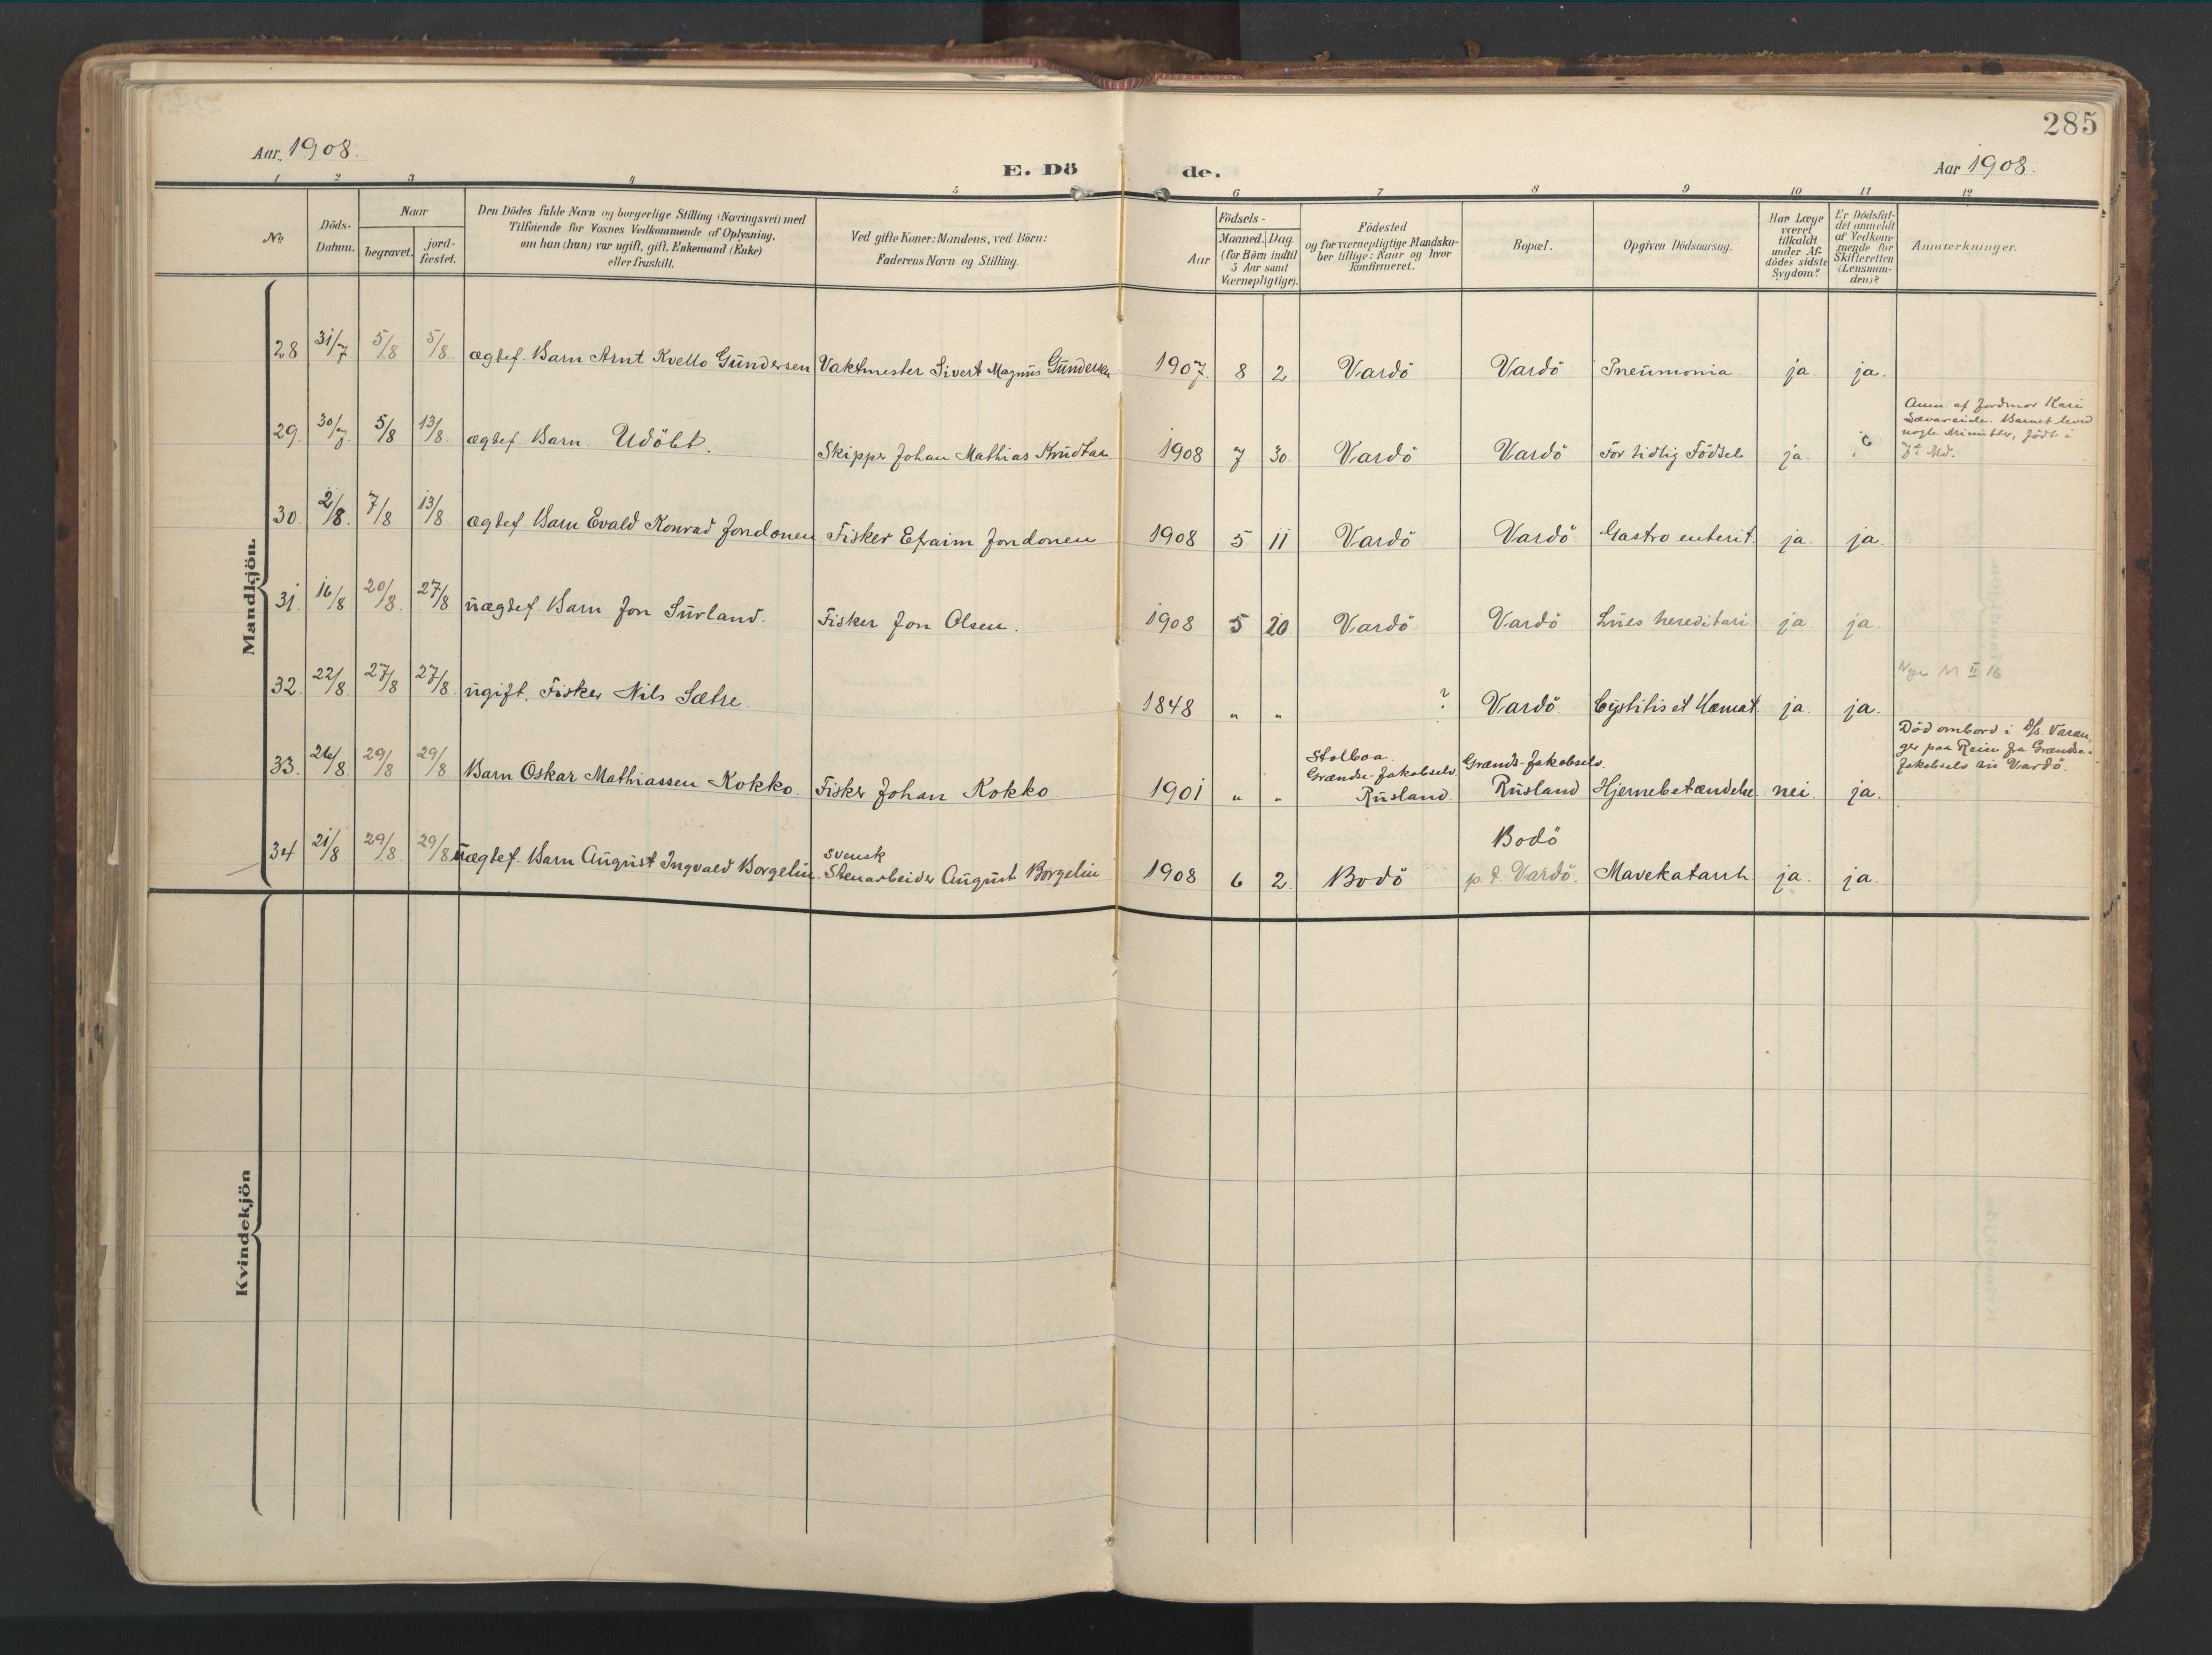 285
Aar 1908.
E. Dö de.
Aar 1908.
1 2 3 4 5 6 7 8 9 10 11 12
No
Döds-Datum.
Naar
begravet.
jord-fæstet.
Den Dödes fulde Navn og borgerlige Stilling (Næringsvei) med
Tilföiende for Voxnes Vedkommende af Oplysning,
om han (hun) var ugift, gift, Enkemand (Enke)
eller fraskilt.
Ved gifte Koner: Mandens, ved Börn:
Faderens Navn og Stilling.
Födsels-
Aar
Maaned. Dag.
(for Börn indtil
5 Aar samt
Værnepligtige).
Födested
og for værnepligtige Mandska-
ber tillige: Naar og hvor
konfirmeret.
Bopæl.
Opgiven Dödsaarsag.
Har Læge
været
tilkaldt
under Af-
dödes sidste
Sygdom?
Er Dödsfal-
det anmeldt
af Vedkom-
mende for
Skifteretten
(Lensman-
den)?
Anmerkninger.
Mandkjön.
28 31/7 5/8 5/8 ægtef. Barn Arnt Kvello Gundersen Vaktmester Sivert Magnus Gundersen 1907. 8 2. Vardö Vardö Pneumonia ja. ja.
29. 30/7. 5/8 13/8. ægtef. Barn. Udöbt. Skipper Johan Mathias Knudtsen 1908 7 30. Vardö Vardö For tidlig Födsel ja.
Anm. af Jordmor Kari
Barnet leved
nogle Minutter, födt i
7d Md.
30. 2/8. 7/8 13/8 ægtef. Barn Evald Konrad Jondonen Fisker Efraim Jondonen 1908 5 11 Vardö Vardö Gastro enterit. ja. ja.
31. 16/8 20/8. 27/8 uægtef. Barn Jon Surland. Fisker Jon Olsen. 1908 5 20 Vardö Vardö Lues hereditari ja. ja.
32. 22/8. 27/8 27/8. ugift. Fisker Nils Sætre. 1848 " " ? Vardö Cystitis et Hæmat. ja. ja.
33. 26/8. 29/8 29/8 Barn Oskar Mathiassen Kokko. Fisker Johan Kokko 1901 " " Stolboa. Grændse-Jakobselv. Rusland Grænds-Jakobselv. Rusland Hjernebetændelse nei. ja.
Död ombord i D/S. Varan-
ger paa Reien fra Grændse-
Jakobselv til Vardö.
34 21/8 29/8. 29/8 uægtef. Barn August Ingvald Borgelin. svensk Stenarbeider August Borgelin 1908 6 2. Bodö Bodö p. t. Vardö. Mavekatarrh ja. ja.
Kvindekjön